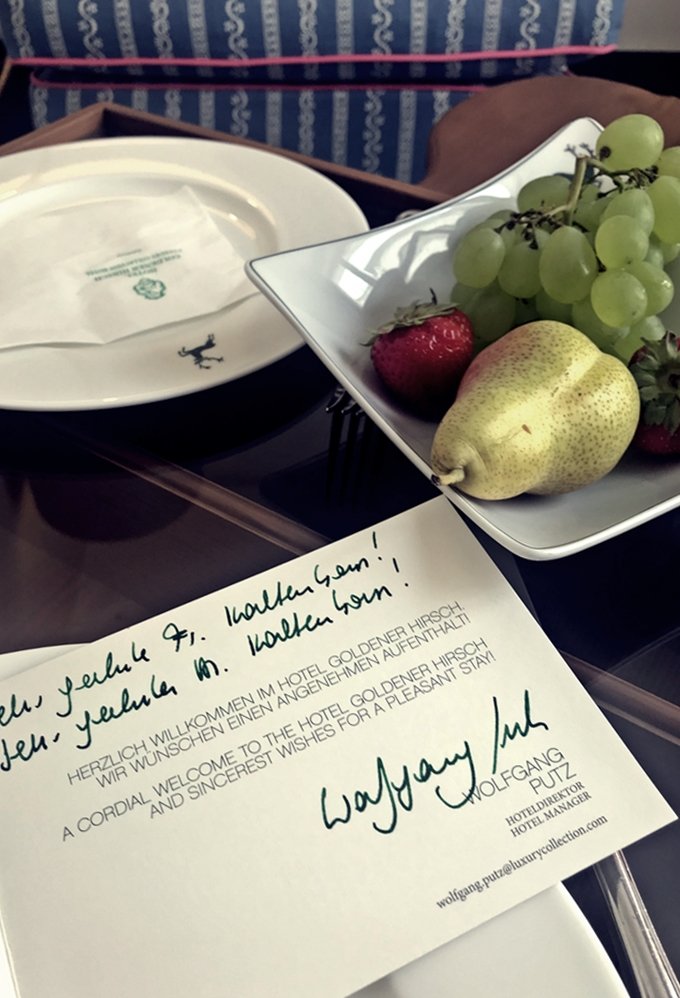 HOTEL
GOLDENER HIRSCH
A LUXURY COLLECTION HOTEL
geehrte Fr. Kaltenborn!
geehrter Hr. Kaltenborn!
HERZLICH WILLKOMMEN IM HOTEL GOLDENER HIRSCH.
WIR WÜNSCHEN EINEN ANGENEHMEN AUFENTHALT!
A CORDIAL WELCOME TO THE HOTEL GOLDENER HIRSCH
AND SINCEREST WISHES FOR A PLEASANT STAY!
Wolfgang Putz
WOLFGANG
PUTZ
HOTELDIREKTOR
HOTEL MANAGER
wolfgang.putz@luxurycollection.com